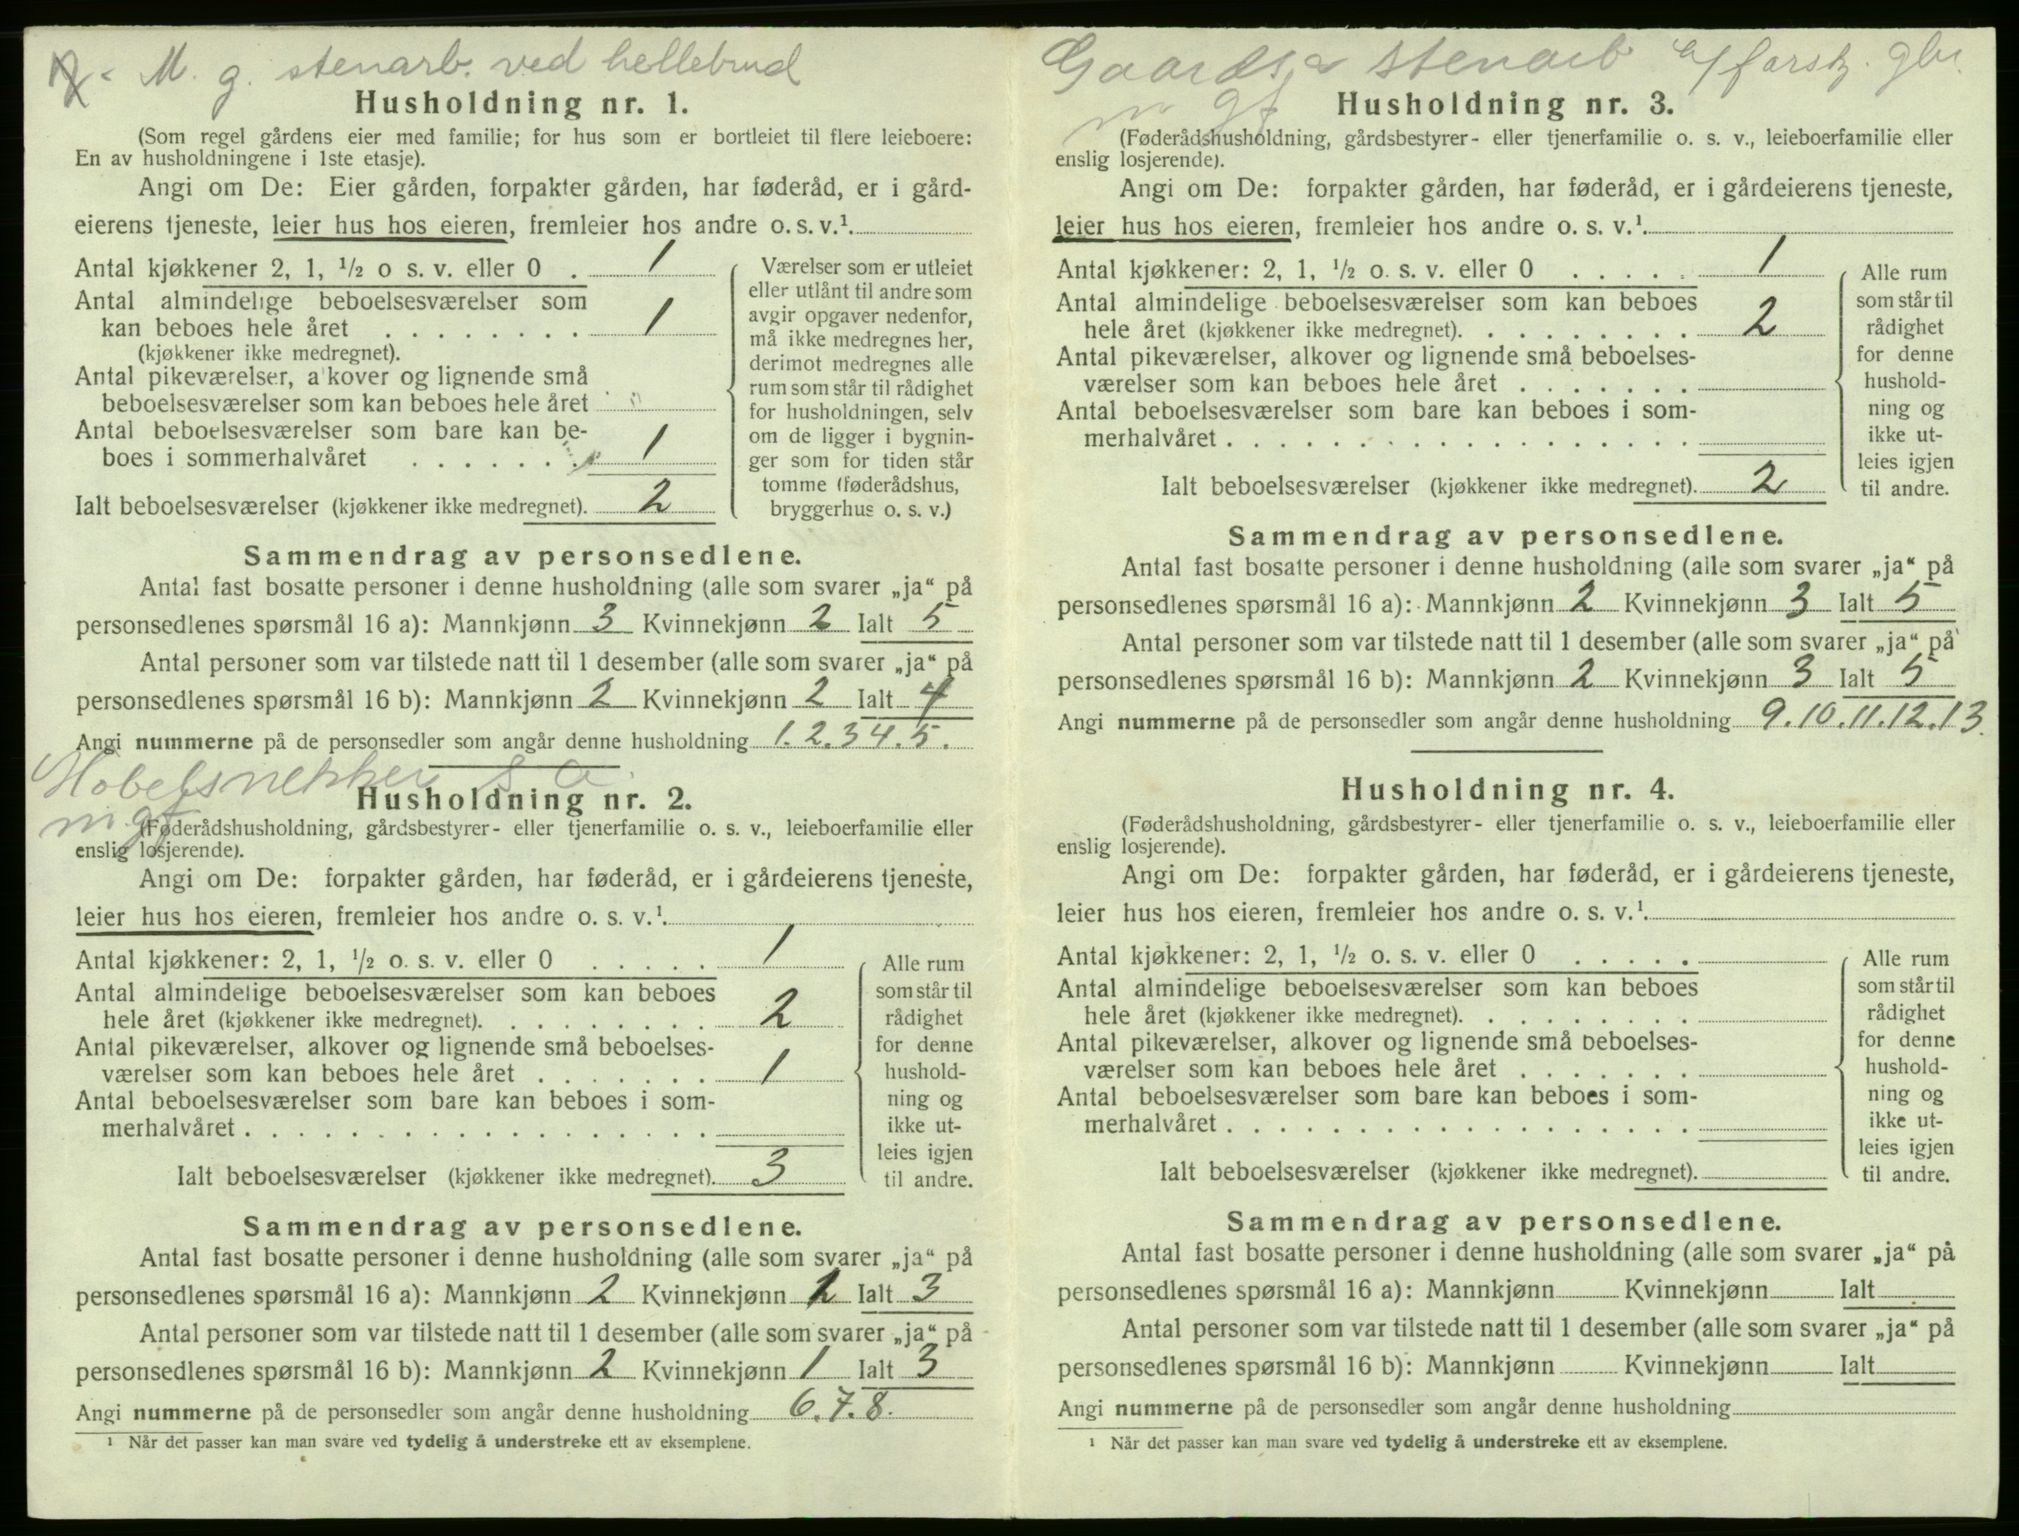 M. g. stenarb. ved hellebrud
Husholdning nr. 1.
(Som regel gårdens eier med familie; for hus som er bortleiet til flere leieboere:
En av husholdningene i 1ste etasje).
Angi om De: Eier gården, forpakter gården, har føderåd, er i gård-
eierens tjeneste, leier hus hos eieren, fremleier hos andre o. s. v.¹
Antal kjøkkener 2, 1, ½ o s. v. eller 0 . 1
Antal almindelige beboelsesværelser som
kan beboes hele året . . . . . . . . 1
(kjøkkener ikke medregnet).
Antal pikeværelser, a'kover og lignende små
beboelsesværelser som kan beboes hele året
Antal beboelsesværelser som bare kan be-
boes i sommerhalvåret . . . . . . . 1
Ialt beboelsesværelser (kjøkkener ikke medregnet). 2
Værelser som er utleiet
eller utlånt til andre som
avgir opgaver nedenfor,
må ikke medregnes her,
derimot medregnes alle
rum som står til rådighet
for husholdningen, selv
om de ligger i bygnin-
ger som for tiden står
tomme (føderådshus,
bryggerhus o. s. v.)
Sammendrag av personsedlene.
Antal fast bosatte personer i denne husholdning (alle som svarer „ja“ på
personsedlenes spørsmål 16 a): Mannkjønn 3 Kvinnekjønn 2 Ialt 5
Antal personer som var tilstede natt til 1 desember (alle som svarer „ja“ på
personsedlenes spørsmål 16 b): Mannkjønn 2 Kvinnekjønn 2 Ialt 4
Angi nummerne på de personsedler som angår denne husholdning 1. 2. 3 4. 5.
Møbelsnekker s a.
m gf
Husholdning nr. 2.
(Føderådshusholdning, gårdsbestyrer- eller tjenerfamilie o. s. v., leieboerfamilie eller
enslig losjerende).
Angi om De: forpakter gården, har føderåd, er i gårdeierens tjeneste,
leier hus hos eieren, fremleier hos andre o. s. v.¹
Antal kjøkkener: 2, 1, ½ o. s. v. eller 0 . . . . . 1
Antal almindelige beboelsesværelser som kan beboes
hele året (kjøkkener ikke medregnet). . . . . . . . . 2
Antal pikeværelser, alkover og lignende små beboelses-
værelser som kan beboes hele året . . . . . . . 1
Antal beboelsesværelser som bare kan beboes i som-
merhalvåret . . . . . . . . . . . . . . . . . .
Ialt beboelsesværelser (kjøkkener ikke medregnet). 3
Alle rum
som står til
rådighet
for denne
hushold-
ning og
ikke ut-
leies igjen
til andre.
Sammendrag av personsedlene.
Antal fast bosatte personer i denne husholdning (alle som svarer „ja“ på
personsedlenes spørsmål 16 a): Mannkjønn 2 Kvinnekjønn 1 Ialt 3
Antal personer som var tilstede natt til 1 desember (alle som svarer „ja“ på
personsedlenes spørsmål 16 b): Mannkjønn 2 Kvinnekjønn 1 Ialt 3
Angi nummerne på de personsedler som angår denne husholdning 6. 7. 8.
¹ Når det passer kan man svare ved tydelig å understreke ett av eksemplene.
Gaards stenarb forsk. gbr.
m gf
Husholdning nr. 3.
(Føderådshusholdning, gårdsbestyrer- eller tjenerfamilie o. s. v., leieboerfamilie eller
enslig losjerende).
Angi om De: forpakter gården, har føderåd, er i gårdeierens tjeneste,
leier hus hos eieren, fremleier hos andre o. s. v.¹
Antal kjøkkener: 2, 1, ½ o. s. v. eller 0 . . . . . 1
Antal almindelige beboelsesværelser som kan beboes
hele året (kjøkkener ikke medregnet). . . . . . . . . 2
Antal pikeværelser, alkover og lignende små beboelses-
værelser som kan beboes hele året . . . . . . .
Antal beboelsesværelser som bare kan beboes i som-
merhalvåret . . . . . . . . . . . . . . . . . .
Ialt beboelsesværelser (kjøkkener ikke medregnet). 2
Alle rum
som står til
rådighet
for denne
hushold-
ning og
ikke ut-
leies igjen
til andre.
Sammendrag av personsedlene.
Antal fast bosatte personer i denne husholdning (alle som svarer „ja“ på
personsedlenes spørsmål 16 a): Mannkjønn 2 Kvinnekjønn 3 Ialt 5
Antal personer som var tilstede natt til 1 desember (alle som svarer „ja“ på
personsedlenes spørsmål 16 b): Mannkjønn 2 Kvinnekjønn 3 Ialt 5
Angi nummerne på de personsedler som angår denne husholdning 9. 10. 11. 12. 13.
Husholdning nr. 4.
(Føderådshusholdning, gårdsbestyrer- eller tjenerfamilie o. s. v., leieboerfamilie eller
enslig losjerende).
Angi om De: forpakter gården, har føderåd, er i gårdeierens tjeneste,
leier hus hos eieren, fremleier hos andre o. s. v.¹
Antal kjøkkener: 2, 1, ½ o. s. v. eller 0 . . . . .
Antal almindelige beboelsesværelser som kan beboes
hele året (kjøkkener ikke medregnet). . . . . . . . .
Antal pikeværelser, alkover og lignende små beboelses-
værelser som kan beboes hele året . . . . . . .
Antal beboelsesværelser som bare kan beboes i som-
merhalvåret . . . . . . . . . . . . . . . . . .
Ialt beboelsesværelser (kjøkkener ikke medregnet).
Alle rum
som står til
rådighet
for denne
hushold-
ning og
ikke ut-
leies igjen
til andre.
Sammendrag av personsedlene.
Antal fast bosatte personer i denne husholdning (alle som svarer „ja“ på
personsedlenes spørsmål 16 a): Mannkjønn Kvinnekjønn Ialt
Antal personer som var tilstede natt til 1 desember (alle som svarer „ja“ på
personsedlenes spørsmål 16 b): Mannkjønn Kvinnekjønn Ialt
Angi nummerne på de personsedler som angår denne husholdning
¹ Når det passer kan man svare ved tydelig å understreke ett av eksemplene.